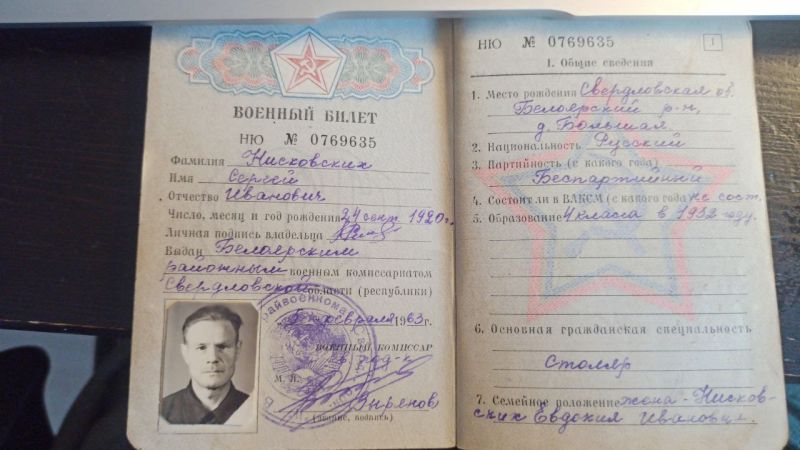 ВОЕННЫЙ БИЛЕТ
НЮ № 0769635
Фамилия Нисковских
Имя Сергей
Отчество Иванович
Число, месяц и год рождения 24 сент. 1920 г.
Личная подпись владельца
Выдан Белоярским
районным военным комиссариатом
Свердловской области (республики)
февраля 1963 г.
ВОЕННЫЙ КОМИССАР
М. П.
Зырянов
(звание, подпись)
НЮ № 0769635
1
1. Общие сведения
1. Место рождения Свердловская об.
Белоярский р-н,
д. Большая
2. Национальность Русский
3. Партийность (с какого года)
Беспартийный
4. Состоит ли в ВЛКСМ (с какого года) не сост.
5. Образование 4 класса в 1932 году.
6. Основная гражданская специальность
Столяр
7. Семейное положение жена - Нисков-
ских Евдокия Ивановна.